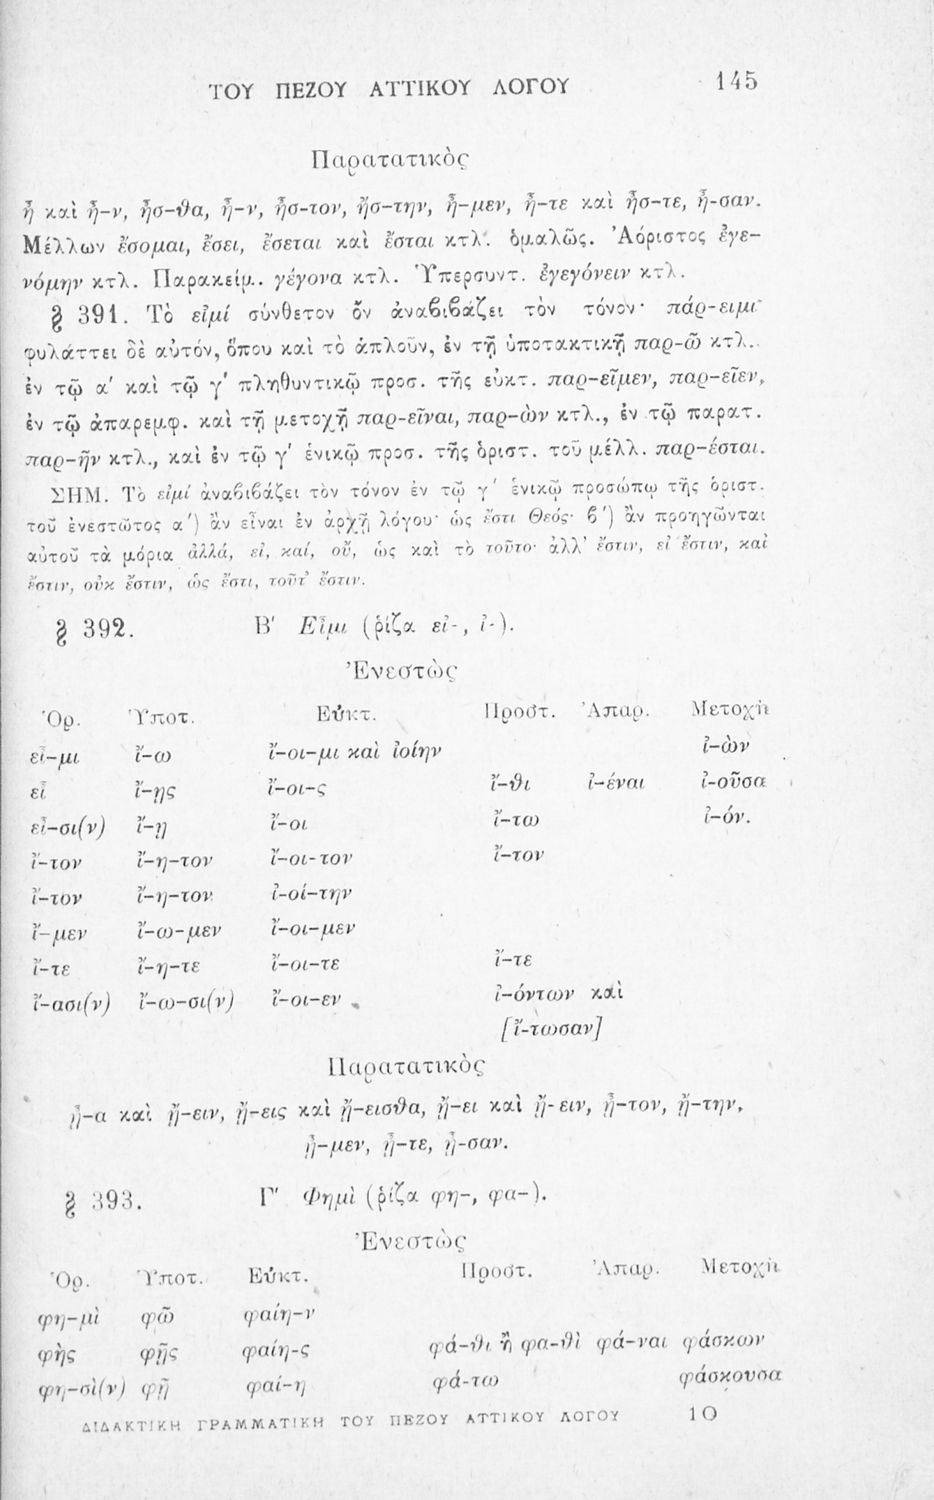 ΤΟΥ ΠΕΖΟΥ ΑΤΤΙΚΟΥ ΛΟΓΟΥ 145
Παρατατικὸς
ἦ καὶ ἦ-ν, ἦσ-θα, ἦ-ν, ἦσ-τον, ἤσ-την, ἦ-μεν, ἦ-τε καὶ ἦσ-τε, ἦ-σαν.
Μέλλων ἔσομαι, ἔσει, ἔσεται καὶ ἔσται κτλ. ὁμαλῶς. Ἀόριστος ἐγε-
νόμην κτλ. Παρακείμ. γέγονα κτλ. Ὑπερσυντ. ἐγεγόνειν κτλ.
§ 391. Τὸ εἰμί σύνθετον ὂν ἀναβιβάζει τὸν τόνον· πάρ-ειμι·
φυλάττει δὲ αὐτόν, ὅπου καὶ τὸ ἁπλοῦν, ἐν τῇ ὑποτακτικῇ παρ-ῶ κτλ.
ἐν τῷ α΄ καὶ τῷ γ΄ πληθυντικῷ προσ. τῆς εὐκτ. παρ-εῖμεν, παρ-εῖεν,
ἐν τῷ ἀπαρεμφ. καὶ τῇ μετοχῇ παρ-εῖναι, παρ-ὼν κτλ., ἐν τῷ παρατ.
παρ-ῆν κτλ., καὶ ἐν τῷ γ΄ ἑνικῷ προσ. τῆς ὁριστ. τοῦ μέλλ. παρ-έσται.
ΣΗΜ. Τὸ εἰμί ἀναβιβάζει τὸν τόνον ἐν τῷ γ΄ ἑνικῷ προσώπῳ τῆς ὁριστ.
τοῦ ἐνεστῶτος α΄) ἂν εἶναι ἐν ἀρχῇ λόγου· ὡς ἔστι Θεός· β΄) ἂν προηγῶνται
αὐτοῦ τὰ μόρια ἀλλά, εἰ, καί, οὔ, ὡς καὶ τὸ τοῦτο· ἀλλ᾿ ἔστιν, εἰ ἔστιν, καὶ
ἔστιν, οὐκ ἔστιν, ὡς ἔστι, τοῦτ᾿ ἔστιν.
§ 392. Β΄ Εἶμι (ῥίζα εἰ-, ἰ-).
Ἐνεστὼς
Ὁρ. Ὑποτ. Εὐκτ. Προστ. Ἀπαρ. Μετοχὴ
εἶ-μι ἴ-ω ἴ-οι-μι καὶ ἰοίην ἰ-ὼν
εἶ ἴ-ῃς ἴ-οι-ς ἴ-θι ἰ-έναι ἰ-οῦσα
εἶ-σι(ν) ἴ-ῃ ἴ-οι ἴ-τω ἰ-όν.
ἴ-τον ἴ-η-τον ἴ-οι-τον ἴ-τον
ἴ-τον ἴ-η-τον ἰ-οί-την
ἴ-μεν ἴ-ω-μεν ἴ-οι-μεν
ἴ-τε ἴ-η-τε ἴ-οι-τε ἴ-τε
ἴ-ασι(ν) ἴ-ω-σι(ν) ἴ-οι-εν ἰ-όντων καὶ
[ἴ-τωσαν]
Παρατατικὸς
ᾖ-α καὶ ᾔ-ειν, ᾔ-εις καὶ ᾔ-εισθα, ᾔ-ει καὶ ᾔ-ειν, ᾖ-τον, ᾔ-την,
ᾖ-μεν, ᾖ-τε, ᾖ-σαν.
§ 393. Γ΄ Φημὶ (ῥίζα φη-, φα-).
Ἐνεστὼς
Ὁρ. Ὑποτ. Εὐκτ. Προστ. Ἀπαρ. Μετοχὴ
φη-μὶ φῶ φαίη-ν
φὴς φῇς φαίη-ς φά-θι ἢ φα-θὶ φά-ναι φάσκων
φη-σὶ(ν) φῇ φαί-η φά-τω φάσκουσα
ΔΙΔΑΚΤΙΚΗ ΓΡΑΜΜΑΤΙΚΗ ΤΟΥ ΠΕΖΟΥ ΑΤΤΙΚΟΥ ΛΟΓΟΥ 10